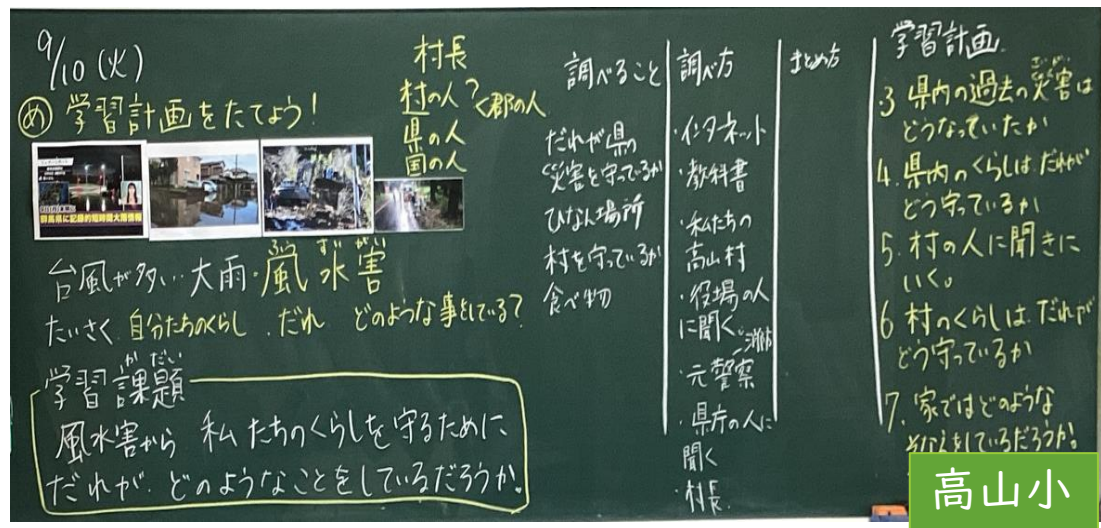 9/10(火)
め 学習計画をたてよう!
村長
村の人?<郡の人
県の人
国の人
群馬県に記録的短時間大雨情報
台風が多い…大雨・風水害
ふう ずい がい
たいさく 自分たちのくらし . だれ どのような事をしている?
学習課題
か だい
風水害から 私たちのくらしを守るために
だれが、どのようなことをしているだろうか。
調べること
だれが県の
災害を守っているか
ひなん場所
村を守っているか
食べ物
調べ方
・インタネット
・教科書
・私たちの
高山村
・役場の人
に聞く。
消防
・元警察
・県庁の人に
聞く
・村長
まとめ方
学習計画
さいがい
3 県内の過去の災害は
どうなっていたか
4. 県内のくらしは、だれが
どう守っているか
5. 村の人に聞きに
いく。
6 村のくらしは、だれが
どう守っているか
7. 家ではどのような
そなえをしているだろうか。
高山小